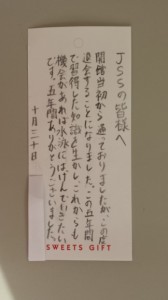 JSSの皆様へ
開館当初から通っておりましたが、この度
退会することになりました。この五年間
で習得した知識を生かし、これからも
機会があれば水泳にはげんでいきたい
です。五年間ありがとうございました。
十月三十日
SWEETS GIFT